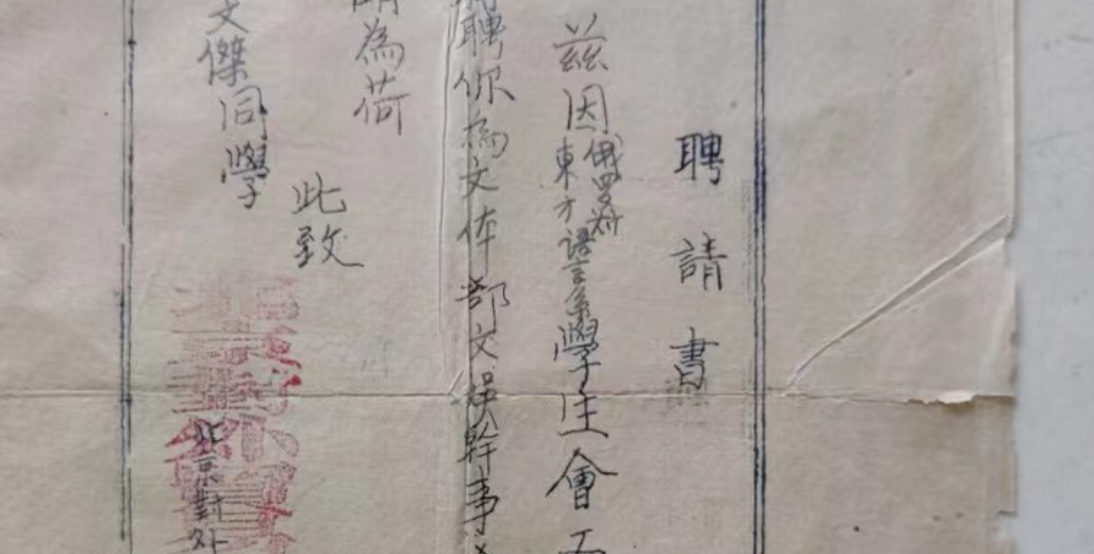 聘請書
兹因俄罗斯東方語言系學生會工
聘你為文体部文娱幹事
為荷
此致
文傑同學
北京對外
北京對外貿